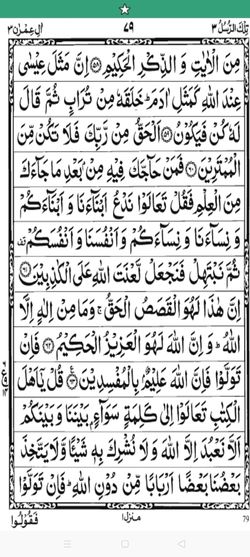 تِلْكَ الرُّسُلُ ٣ ٧٩ اٰلِ عِمْرٰن ٣
مِنَ الْاٰيٰتِ وَ الذِّكْرِ الْحَكِيْمِ ﴿۵۸﴾ اِنَّ مَثَلَ عِيْسٰى
عِنْدَ اللّٰهِ كَمَثَلِ اٰدَمَ ؕ خَلَقَهٗ مِنْ تُرَابٍ ثُمَّ قَالَ
لَهٗ كُنْ فَيَكُوْنُ ﴿۵۹﴾ اَلْحَقُّ مِنْ رَّبِّكَ فَلَا تَكُنْ مِّنَ
الْمُمْتَرِيْنَ ﴿۶۰﴾ فَمَنْ حَآجَّكَ فِيْهِ مِنْۢ بَعْدِ مَا جَآءَكَ
مِنَ الْعِلْمِ فَقُلْ تَعَالَوْا نَدْعُ اَبْنَآءَنَا وَ اَبْنَآءَكُمْ
وَ نِسَآءَنَا وَ نِسَآءَكُمْ وَ اَنْفُسَنَا وَ اَنْفُسَكُمْ
ثُمَّ نَبْتَهِلْ فَنَجْعَلْ لَّعْنَتَ اللّٰهِ عَلَى الْكٰذِبِيْنَ ﴿۶۱﴾
اِنَّ هٰذَا لَهُوَ الْقَصَصُ الْحَقُّ ۚ وَ مَا مِنْ اِلٰهٍ اِلَّا
اللّٰهُ ؕ وَ اِنَّ اللّٰهَ لَهُوَ الْعَزِيْزُ الْحَكِيْمُ ﴿۶۲﴾ فَاِنْ
تَوَلَّوْا فَاِنَّ اللّٰهَ عَلِيْمٌۢ بِالْمُفْسِدِيْنَ ﴿۶۳﴾ قُلْ يٰٓاَهْلَ
الْكِتٰبِ تَعَالَوْا اِلٰى كَلِمَةٍ سَوَآءٍۢ بَيْنَنَا وَ بَيْنَكُمْ
اَلَّا نَعْبُدَ اِلَّا اللّٰهَ وَ لَا نُشْرِكَ بِهٖ شَيْـًٔا وَّ لَا يَتَّخِذَ
بَعْضُنَا بَعْضًا اَرْبَابًا مِّنْ دُوْنِ اللّٰهِ ؕ فَاِنْ تَوَلَّوْا
فَقُوْلُوا منزل ۱ 79